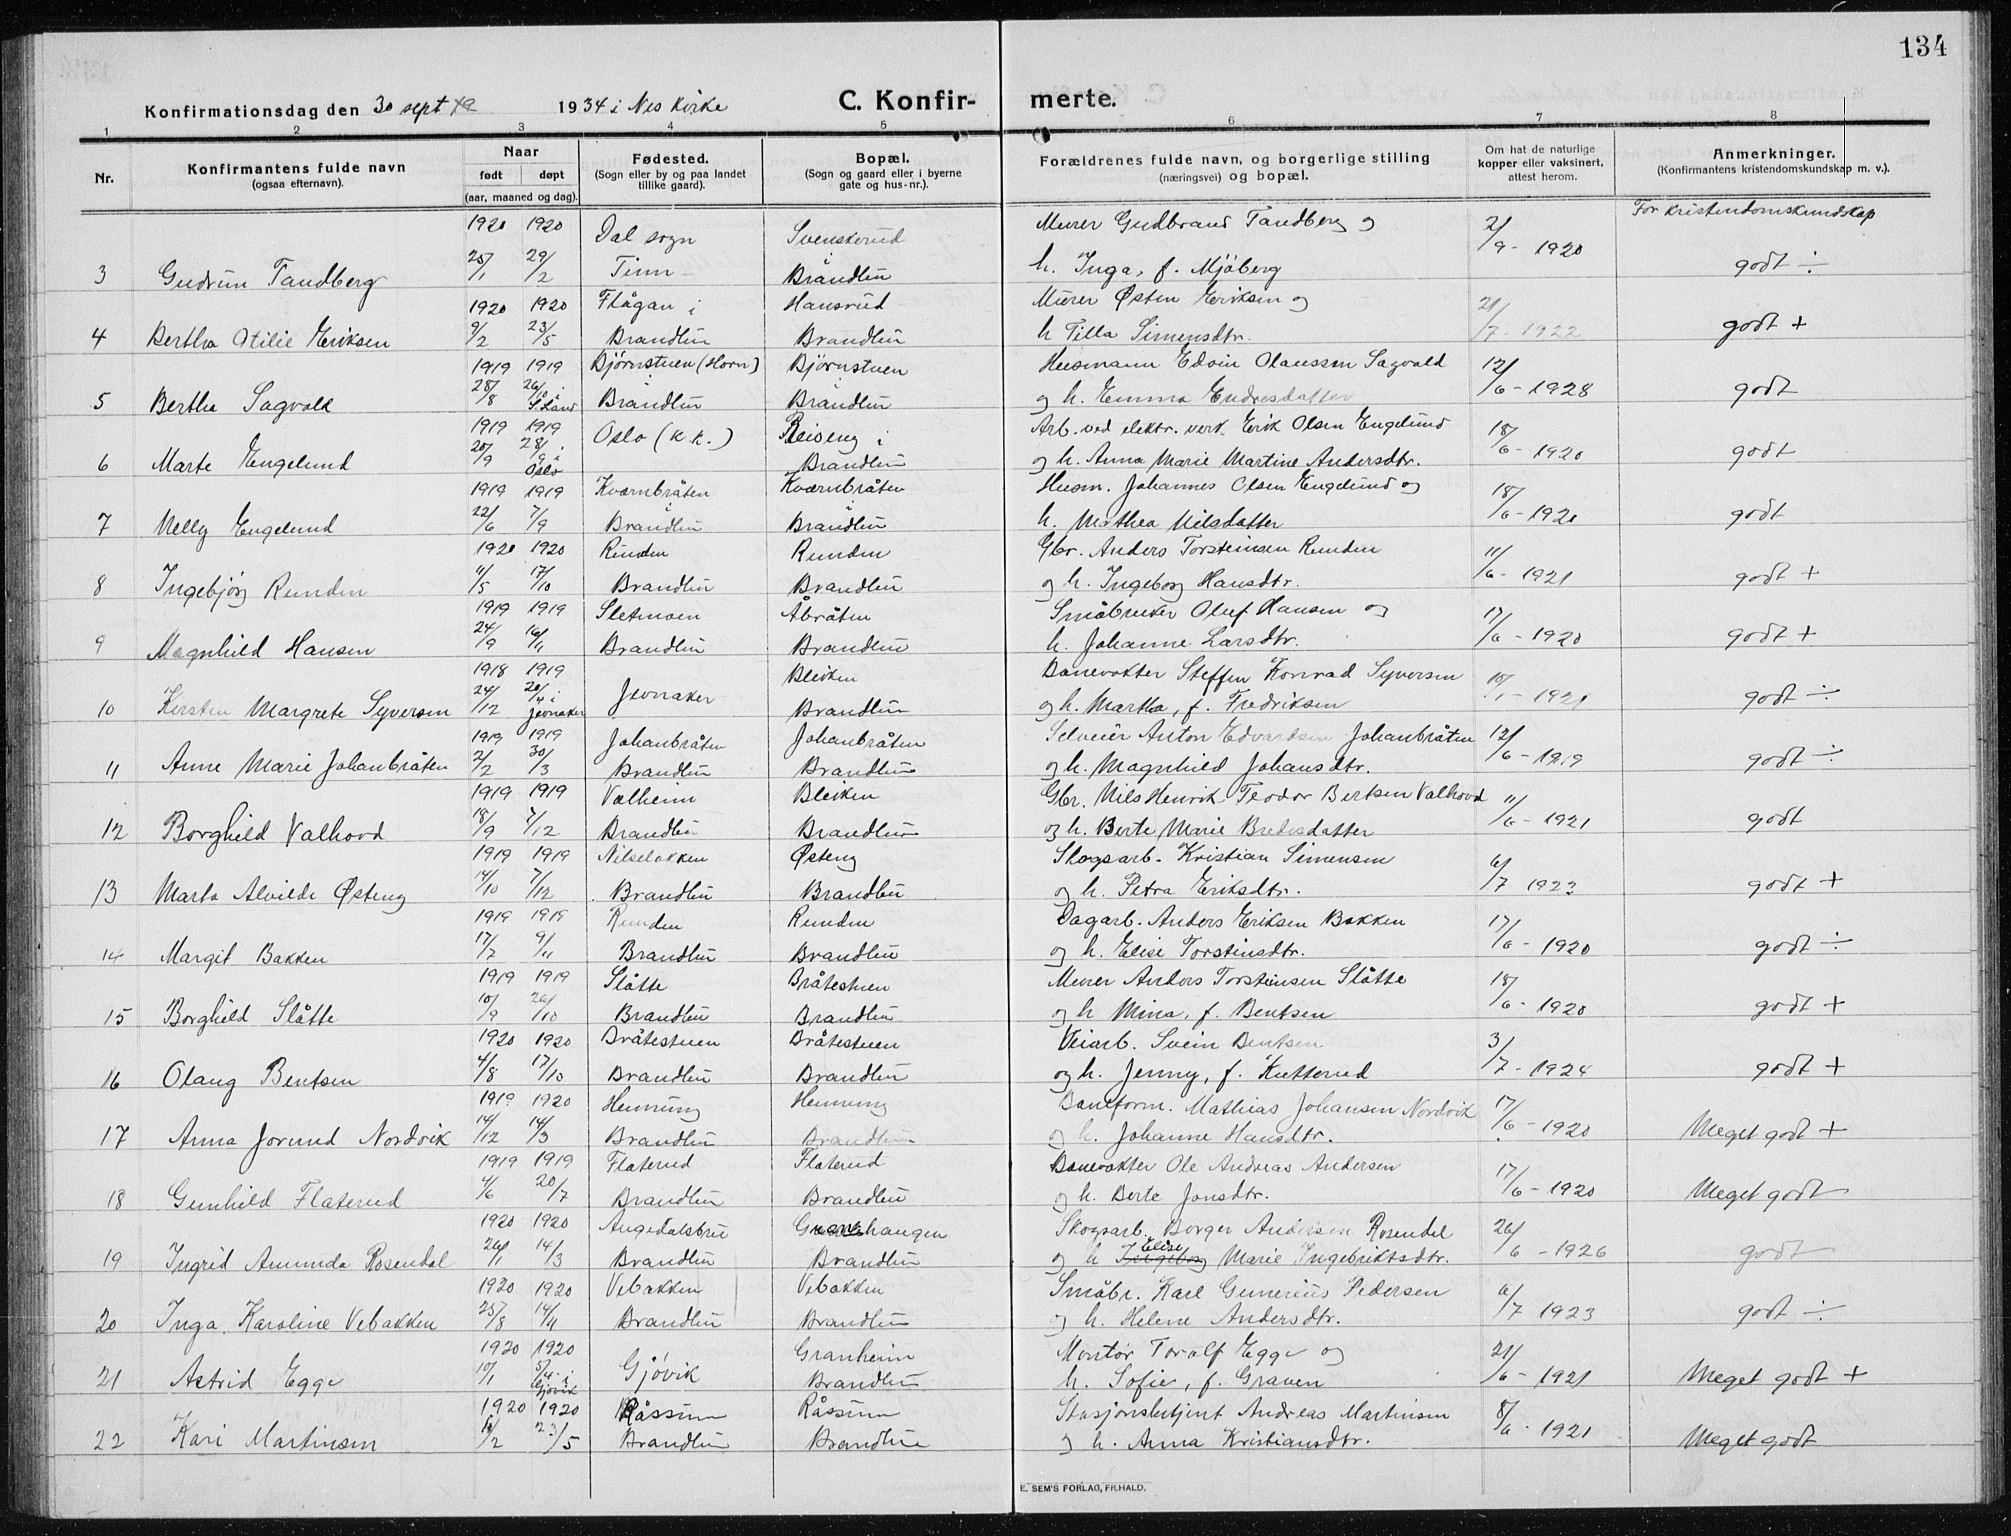 134
Konfirmationsdag den 30 sept 1934 i Nes kirke C. Konfir- merte.
1 2 3 4 5 6 7 8
Nr. Konfirmantens fulde navn (ogsaa efternavn). Naar født døpt (aar, maaned og dag). Fødested. (Sogn eller by og paa landet tillike gaard). Bopæl. (Sogn og gaard eller i byerne gate og hus-nr.). Forældrenes fulde navn, og borgerlige stilling (næringsvei) og bopæl. Om hat de naturlige kopper eller vaksinert, attest herom. Anmerkninger. (Konfirmantens kristendomskundskap m. v.).
1920 1920 Dal sogn Svenskerud Murer Gudbrand Tandberg og 2/9 - 1920 For kristendomskundskap
3 Gudrun Tandberg 25/1 29/2 Tinn Brandbu h. Inga, f. Mjöberg godt ÷
1920 1920 Flågan i Hansrud Murer Østen Eriksen og 21/7 - 1922
4 Bertha Otilie Eriksen 9/2 23/5 Brandbu Brandbu h Tilla Simensdtr. godt +
1919 1919 Bjørnstuen (Horn) Bjørnstuen Husmann Edvin Olaussen Sagvold 12/6 - 1928
5 Bertha Sagvold 28/8 26/10 i S. Land Brandbu Brandbu og h. Emma Endresdatter godt
1919 1919 Oslo (k.k.) Reiseng i Arb. ved elektr. verk Erik Olsen Engelund 18/6 - 1920
6 Marte Engelund 20/9 28/9 i Oslo Brandbu og h. Anna Marie Martine Andersdtr. godt
1919 1919 Kværnbråten Kværnbråten Husm. Johannes Olsen Engelund og 18/6 - 1920
7 Nelly Engelund 22/6 7/9 Brandbu Brandbu h. Mathea Nilsdatter godt
1920 1920 Runden Runden Gbr. Anders Torsteinsen Runden 11/6 - 1921
8 Ingebjörg Runden 11/5 17/10 Brandbu Brandbu og h. Ingeborg Hansdtr. godt +
1919 1919 Sletmoen Åbråten Småbruker Oluf Hansen og 17/6 - 1920
9 Magnhild Hansen 24/9 16/11 Brandbu Brandbu h. Johanne Larsdtr. godt +
1918 1919 Jevnaker Bleiken Banevokter Steffen Konrad Syversen 10/1 - 1921
10 Kirsten Margrete Syversen 24/12 20/4 i Jevnaker Brandbu og h. Martha, f. Fredriksen godt ÷
1919 1919 Johanbråten Johanbråten Selveier Anton Edvardsen Johanbråten 12/6 - 1919
11 Anne Marie Johanbråten 2/2 30/3 Brandbu Brandbu og h. Magnhild Johansdtr. godt ÷
1919 1919 Valheim Bleiken Gbr. Nils Henrik Teodor Bertsen Valhovd 11/6 - 1921
12 Borghild Valhovd 18/9 7/12 Brandbu Brandbu og h. Berte Marie Bredesdatter godt
1919 1919 Nilseløkken Østeng Skogsarb. Kristian Simensen 6/7 1923
13 Marta Alvilde Østeng 14/10 7/12 Brandbu Brandbu og h. Petra Eriksdtr. godt +
1919 1919 Runden Runden Dagarb. Anders Eriksen Bakken 17/6 - 1920
14 Margit Bakken 17/7 9/11 Brandbu Brandbu og h. Elise Torstinsdtr. godt ÷
1919 1919 Slåtte Bråtestuen Murer Anders Torsteinsen Slåtte 18/6 - 1920
15 Borghild Slåtte 10/9 26/10 Brandbu Brandbu og h Mina, f. Bentsen godt +
1920 1920 Bråtestuen Bråtestuen Veiarb. Svein Bentsen 3/7 - 1924
16 Olaug Bentsen 4/8 17/10 Brandbu Brandbu og h. Jenny, f. Kutterud godt +
1919 1920 Hennung Hennung Baneform. Mathias Johansen Nordvik 17/6 - 1920
17 Anna Jorund Nordvik 14/12 14/3 Brandbu Brandbu og h. Johanne Hansdtr. Meget godt +
1919 1919 Flaterud Flaterud Banevokter Ole Andreas Andersen 17/6 - 1920
18 Gunhild Flaterud 4/6 20/7 Brandbu Brandbu og h. Berte Jonsdtr. Meget godt
1920 1920 Augedalsbru Granehaugen Skogsarb. Borger Andersen Rosendal 26/6 - 1926
19 Ingrid Amunda Rosendal 26/1 14/3 Brandbu Brandbu og h Ingeborg Elise Marie Ingebriktsdtr. godt
1920 1920 Vebakken Vebakken Småbr. Karl Gunerius Pedersen 6/7 1923
20 Inga Karoline Vebakken 25/8 14/11 Brandbu Brandbu og h. Helene Andersdtr. godt ÷
1920 1920 Gjøvik Granheim Montør Toralf Egge og 21/6 - 1921
21 Astrid Egge 10/1 5/4 i Gjøvik Brandbu h. Sofie, f. Graven Meget godt +
1920 1920 Råssum Råssum Stasjonsbetjent Andreas Martinsen 8/6 - 1921
22 Kari Martinsen 11/2 23/5 Brandbu Brandbu og h. Anna Kristiansdtr. Meget godt
E. SEM'S FORLAG, FR.HALD.